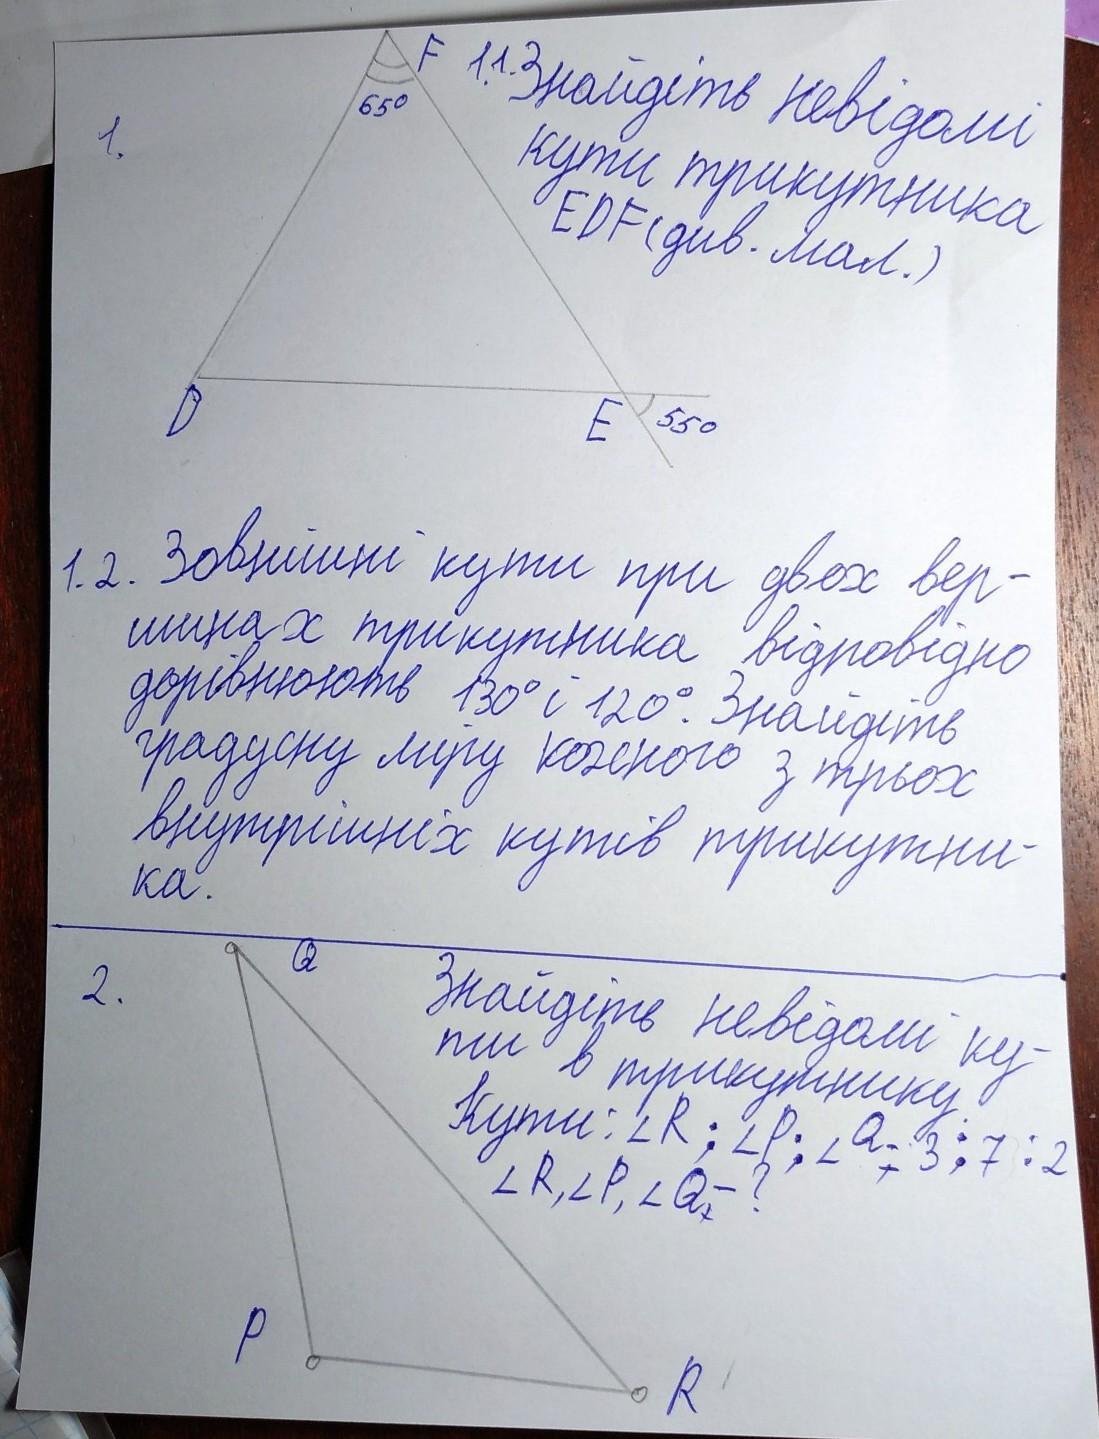 1.
F
65°
1.1. Знайдіть невідомі
кути трикутника
EDF (див. мал.)
D
E
55°
1.2. Зовнішні кути при двох вер-
шинах трикутника відповідно
дорівнюють 130° і 120°. Знайдіть
градусну міру кожного з трьох
внутрішніх кутів трикутни-
ка.
2.
Q
Знайдіть невідомі ку-
ти в трикутнику.
Кути: ∠R : ∠P : ∠Q = 3 : 7 : 2
∠R, ∠P, ∠Q - ?
P
R